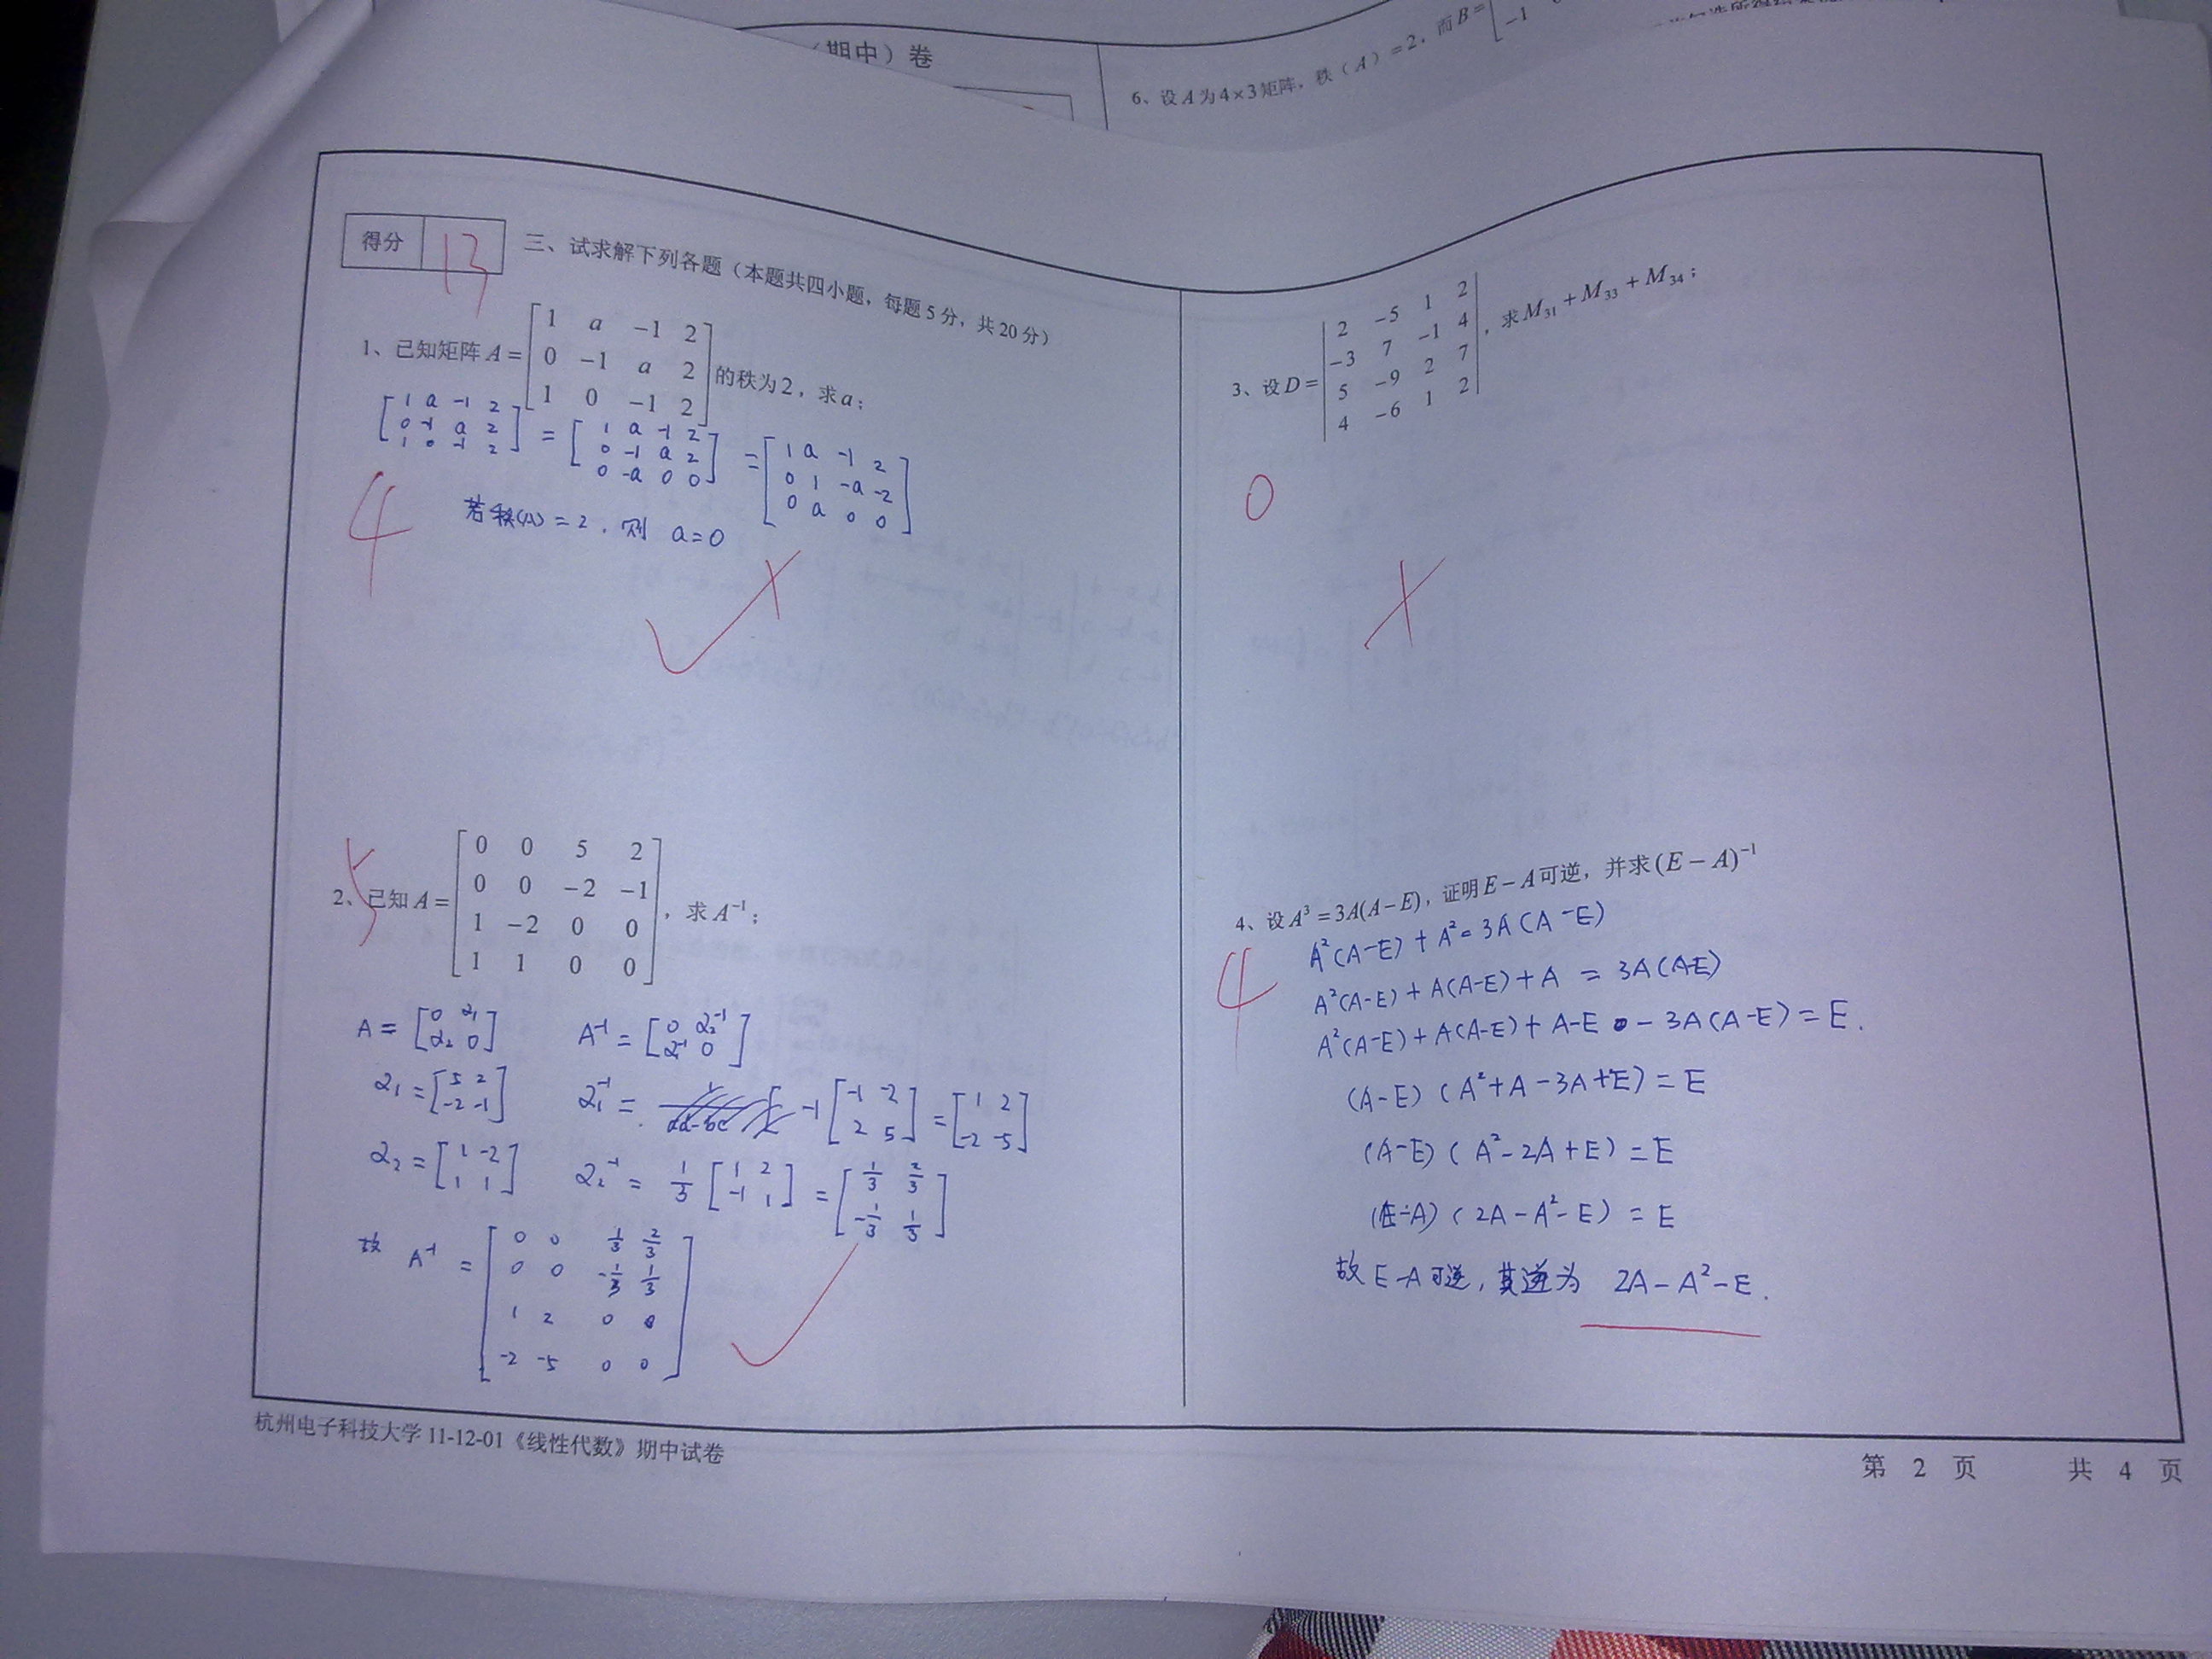 （期中）卷
6、设A为4×3矩阵，秩（A）=2，而B=
-1
得分 13
三、试求解下列各题（本题共四小题，每题5分，共20分）
1、已知矩阵A=[1 a -1 2; 0 -1 a 2; 1 0 -1 2]的秩为2，求a；
[1 a -1 2; 0 -1 a 2; 1 0 -1 2] = [1 a -1 2; 0 -1 a 2; 0 -a 0 0] = [1 a -1 2; 0 1 -a -2; 0 a 0 0]
4
若秩(A)=2，则 a=0
5
2、已知A=[0 0 5 2; 0 0 -2 -1; 1 -2 0 0; 1 1 0 0]，求A⁻¹；
A=[0 α₁; α₂ 0] A⁻¹=[0 α₂⁻¹; α₁⁻¹ 0]
α₁=[5 2; -2 -1] α₁⁻¹= -1[-1 -2; 2 5]=[1 2; -2 -5]
α₂=[1 -2; 1 1] α₂⁻¹=1/3[1 2; -1 1]=[1/3 2/3; -1/3 1/3]
故 A⁻¹=[0 0 1/3 2/3; 0 0 -1/3 1/3; 1 2 0 0; -2 -5 0 0]
3、设D=|2 -5 1 2; -3 7 -1 4; 5 -9 2 7; 4 -6 1 2|，求M₃₁+M₃₃+M₃₄；
0
4、设A³=3A(A-E)，证明E-A可逆，并求(E-A)⁻¹
4
A²(A-E)+A²=3A(A-E)
A²(A-E)+A(A-E)+A=3A(A-E)
A²(A-E)+A(A-E)+A-E-3A(A-E)=E.
(A-E)(A²+A-3A+E)=E
(A-E)(A²-2A+E)=E
(E-A)(2A-A²-E)=E
故E-A可逆，其逆为 2A-A²-E.
杭州电子科技大学11-12-01《线性代数》期中试卷
第 2 页 共 4 页